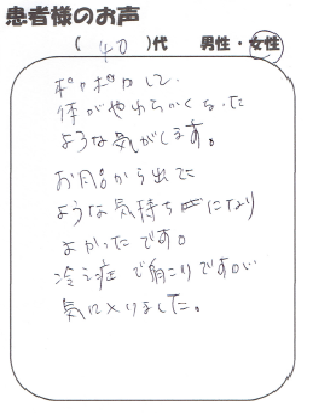 患者様のお声
( 40 )代 男性・女性
ポカポカして、
体がやわらかくなった
ような気がします。
お風呂から出てた
ような気持ちになり
よかったです。
冷え症で肩こりですので
気に入りました。